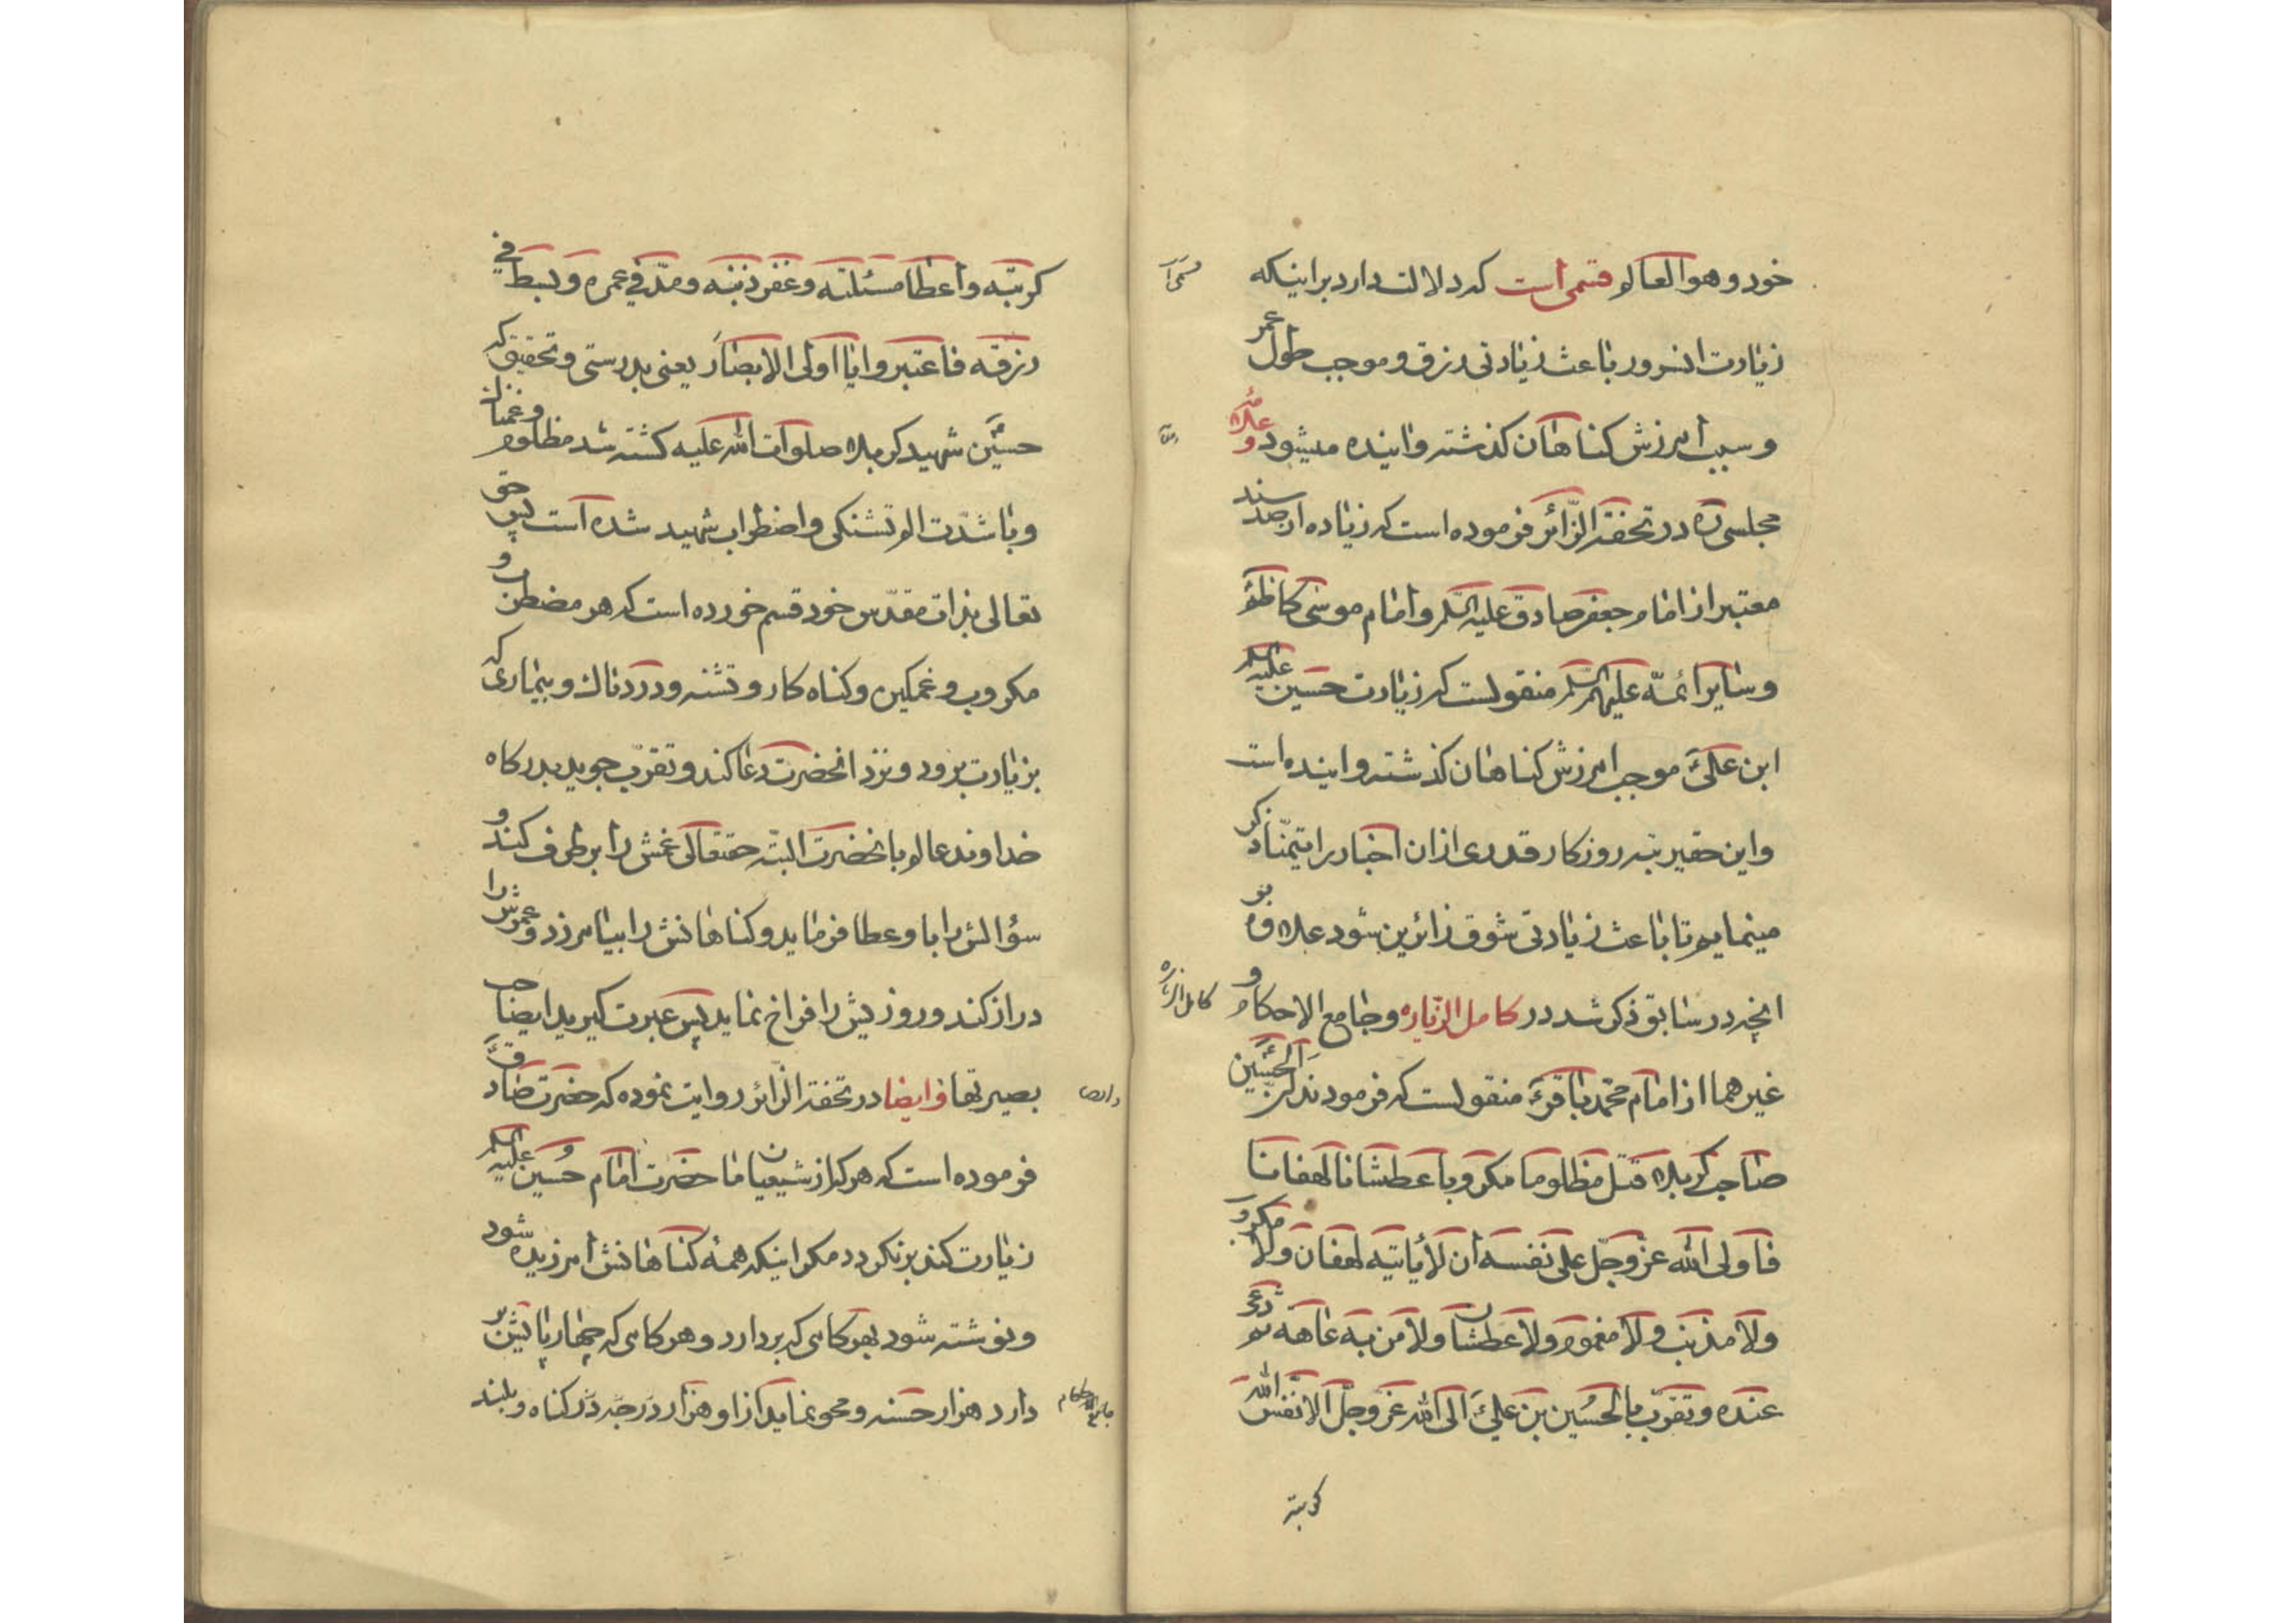 خود و هو العالم قسمی است که دلالت دارد بر اینکه
زیارت انسرور باعث زیادتی رزق و موجب طول عمر
و سبب امرزش کناهان کذشته و اینده میشود و علامه
مجلسی ره در تحفة الزّائر فرموده است که زیاده از صد سند
معتبر از امام جعفر صادق علیه السّلم و امام موسی کاظم
و سایر ائمّه علیهم السّلم منقولست که زیارت حسین علیه السلم
ابن علیّ موجب امرزش کناهان کذشته و اینده است
و این حقیر تبه روزکار قدری از ان اخبار را تیمّنا ذکر
مینمایم تا باعث زیادتی شوق زائرین شود علاوه بر
انچه در سابق ذکر شد در کامل الزّیاره و جامع الاحکام و
کامل الزیاره
غیرهما از امام محمّد باقرؑ منقولست که فرمودند انّ الحسین
صاحب کربلا قتل مظلوما مکروبا عطشانا لهفانا
فاولی الله عزّ وجلّ علی نفسه ان لا یاتیه لهفان ولا مکروب
ولا مذنب ولا مغموم ولا عطشان ولا من به عاهة ثم دعی
عنده و تقرّب بالحسین بن علیّ الی الله عزّ وجلّ الا نفّس الله
کربته
کربته واعطا مسئلته وغفر ذنبه ومدّ فی عمره وبسط فی
رزقه فاعتبروا یا اولی الابصار یعنی بدرستی و تحقیق که
حسین شهید کربلا صلوات الله علیه کشته شد مظلوم و غمناک
و با شدّت الم و تشنکی و اضطراب شهید شده است پس حق
تعالی بذات مقدّس خود قسم خورده است که هر مضطر و
مکروب و غمکین و کناه کار و تشنه و دردناک و بیماری که
بزیارت برود و نزد انحضرت دعا کند و تقرّب جوید بدرکاه
خداوند عالم بانحضرت البتّه حقتعالی غمش را برطرف کند و
سؤالش را باو عطا فرماید و کناهانش را بیامرزد و عمرش را
دراز کند و روزیش را فراخ نماید پس عبرت کیرید ایصاحب
بصیرتها و ایضا در تحفة الزّائر روایت نموده که حضرت صادقؑ
فرموده است که هر که از شیعیان ما حضرت امام حسین علیه السلم
زیارت کند برنکردد مکر اینکه همه کناهانش امرزیده شود
و نوشته شود بهر کامی که بردارد و هر کامی که چهارپایش بر
دارد هزار حسنه و محو نماید از او هزار درجه در کناه و بلند
جامع الاحکام